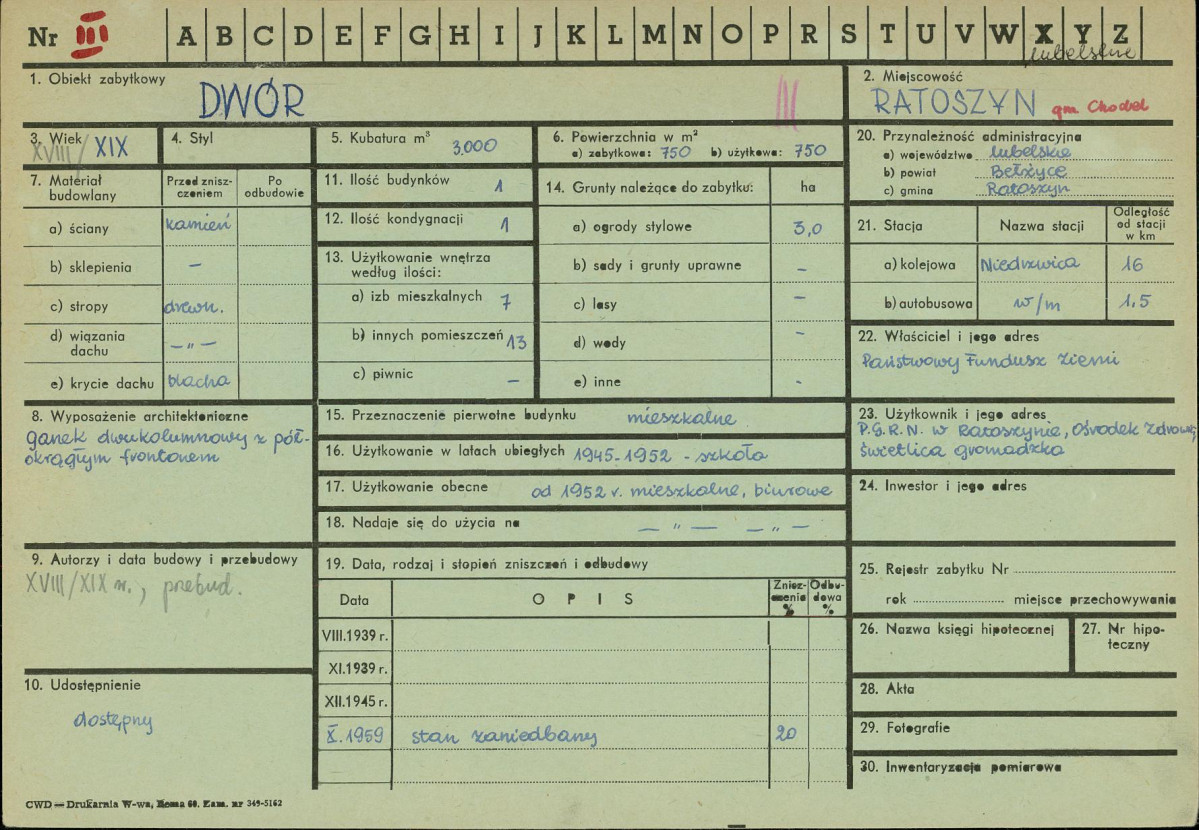 Nr III A B C D E F G H I J K L M N O P R S T U V W X Y Z
lubelskie
1. Obiekt zabytkowy
DWÓR
III
2. Miejscowość
RATOSZYN gm Chodel
3. Wiek
XVIII/ XIX
4. Styl
5. Kubatura m³ 3.000
6. Powierzchnia w m²
a) zabytkowa: 750 b) użytkowa: 750
20. Przynależność administracyjna
a) województwo lubelskie
b) powiat Bełżyce
c) gmina Ratoszyn
7. Materiał budowlany
Przed znisz-
czeniem
Po
odbudowie
a) ściany kamień
b) sklepienia –
c) stropy drewn.
d) wiązania
dachu – „ –
e) krycie dachu blacha
11. Ilość budynków 1
12. Ilość kondygnacji 1
13. Użytkowanie wnętrza
według ilości:
a) izb mieszkalnych 7
b) innych pomieszczeń 13
c) piwnic –
14. Grunty należące do zabytku: ha
a) ogrody stylowe 3,0
b) sady i grunty uprawne –
c) lasy –
d) wody –
e) inne -
21. Stacja
Nazwa stacji
Odległość
od stacji
w km
a) kolejowa Niedrzwica 16
b) autobusowa w/m 1.5
22. Właściciel i jego adres
Państwowy Fundusz Ziemi
8. Wyposażenie architektoniczne
ganek dwukolumnowy z pół-
okrągłym frontonem
15. Przeznaczenie pierwotne budynku mieszkalne
16. Użytkowanie w latach ubiegłych 1945-1952 - szkoła
17. Użytkowanie obecne od 1952 r. mieszkalne, biurowe
18. Nadaje się do użycia na — „ — — „ —
23. Użytkownik i jego adres
P.G.R.N. w Ratoszynie, Ośrodek Zdrowia,
świetlica gromadzka
24. Inwestor i jego adres
9. Autorzy i data budowy i przebudowy
XVIII/XIX w., przebud.
19. Data, rodzaj i stopień zniszczeń i odbudowy
Data
OPIS
Znisz-
czenia
%
Odbu-
dowa
%
VIII.1939 r.
XI.1939 r.
XII.1945 r.
X.1959 stan zaniedbany 20
10. Udostępnienie
dostępny
25. Rejestr zabytku Nr
rok miejsce przechowywania
26. Nazwa księgi hipotecznej
27. Nr hipo-
teczny
28. Akta
29. Fotografie
30. Inwentaryzacja pomiarowa
CWD — Drukarnia W-wa, Zam. nr 349-5162